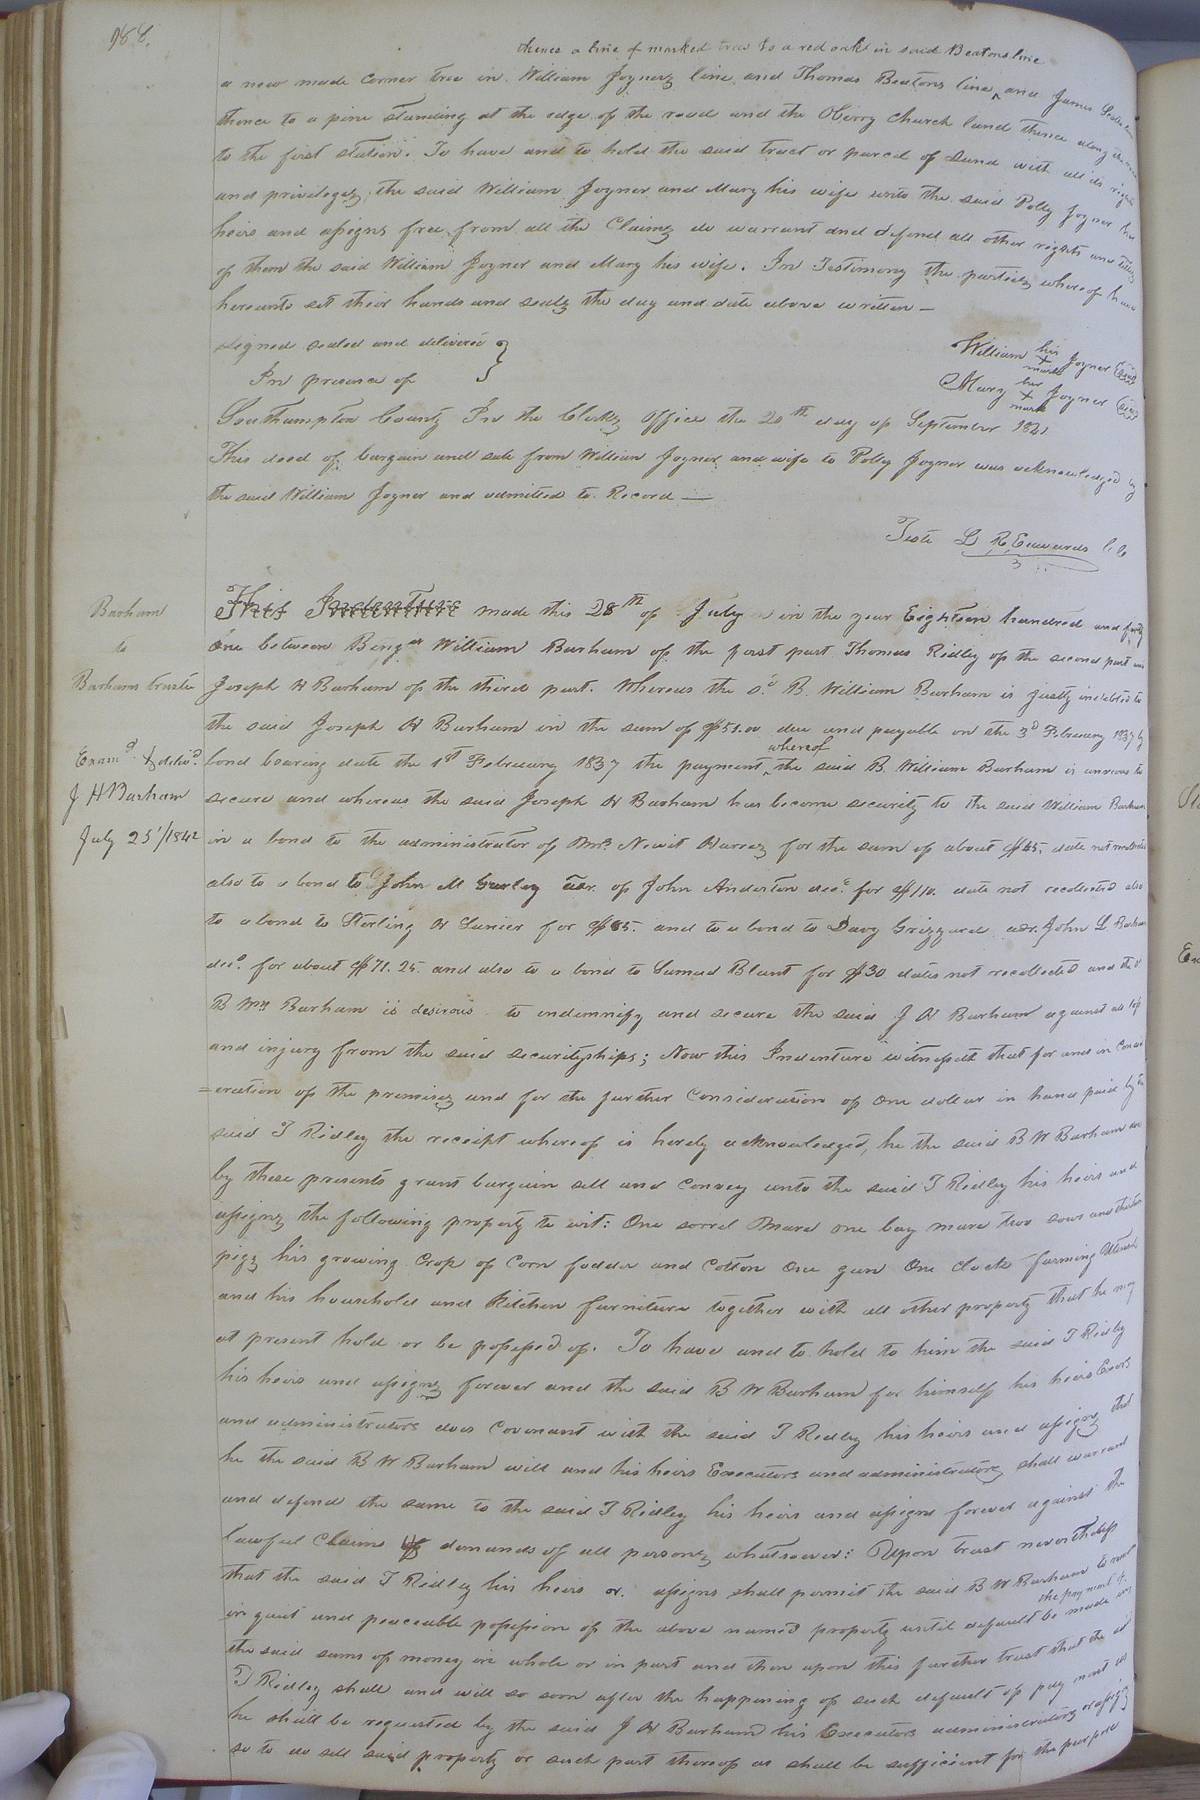 988.
thence a line of marked trees to a red oak in said Beatons line
a new made corner tree in William Joyners line and Thomas Beatons line ^ and James
thence to a pine standing at the edge of the road and the Oberry Church land thence along the
to the first station. To have and to hold the said tract or parcel of Land with all its rights
and privileges, the said William Joyner and Mary his wife unto the said Polly Joyner her
heirs and assigns free from all the Claims do warrant and defend all other rights and titles
of them the said William Joyner and Mary his wife. In Testimony the parties whereof have
hereunto set their hands and seals the day and date above written —
signed sealed and delivered }
In presence of
William his + mark Joyner (seal)
Mary her + mark Joyner (seal)
Southampton County In the Clerks Office the 20th day of September 1841
This deed of bargain and sale from William Joyner and wife to Polly Joyner was acknowledged by
the said William Joyner and admitted to Record —
Teste L R Edwards C C
Barham
to
Barhams trustee
Examd & delivd.
J H Barham
July 25'/1842
This Indenture made this 28th of July in the year Eighteen hundred and forty
one between Benja William Barham of the first part Thomas Ridley of the second part and
Joseph H Barham of the third part. Whereas the sd. B. William Barham is justly indebted to
the said Joseph H Barham in the sum of $51.00 due and payable on the 3d February 1837 by
bond bearing date the 1st February 1837 the payment ^ whereof the said B. William Barham is anxious to
secure and whereas the said Joseph H Barham has become security to the said William Barham
in a bond to the administrator of Mrs. Newit for the sum of about $45. date not recollected
also to a bond to John M Gurley Exr. of John Anderton decd. for $110. date not recollected also
to a bond to Sterling H Lanier for $85. and to a bond to Davy Grizzard adr. John L. Barham
decd. for about $71.25 and also to a bond to Samuel Blunt for $30 dates not recollected and the sd
B Wm Barham is desirous to indemnify and secure the said J H Barham against all loss
and injury from the said securityships; Now this Indenture witnesseth that for and in consid
=eration of the premises and for the further Consideration of One dollar in hand paid by the
said T Ridley the receipt whereof is hereby acknowledged, he the said B W Barham do
by these presents grant bargain sell and convey unto the said T Ridley his heirs and
assigns the following property to wit: One sorrel Mare one bay mare two sows and thirteen
pigs his growing Crop of Corn fodder and Cotton One gun One Clock farming Utensils
and his household and Kitchen furniture together with all other property that he may
at present hold or be possessed of. To have and to hold to him the said T Ridley
his heirs and assigns forever and the said B W Barham for himself his heirs Exors
and administrators does Covenant with the said T Ridley his heirs and assigns that
he the said B W Barham will and his heirs Executors and administrators shall warrant
and defend the same to the said T Ridley his heirs and assigns forever against the
lawful Claims demands of all persons whatsoever: Upon trust nevertheless
that the said T Ridley his heirs or assigns shall permit the said B W Barham to remain
in quiet and peaceable possession of the above named property until default be made in the payment of
the said sums of money in whole or in part and then upon this further trust that the sd
T Ridley shall and will so soon after the happening of such default of payment as
he shall be requested by the said J H Barham his Executors administrators or assigns
so to do sell said property or such part thereof as shall be sufficient for the purpose